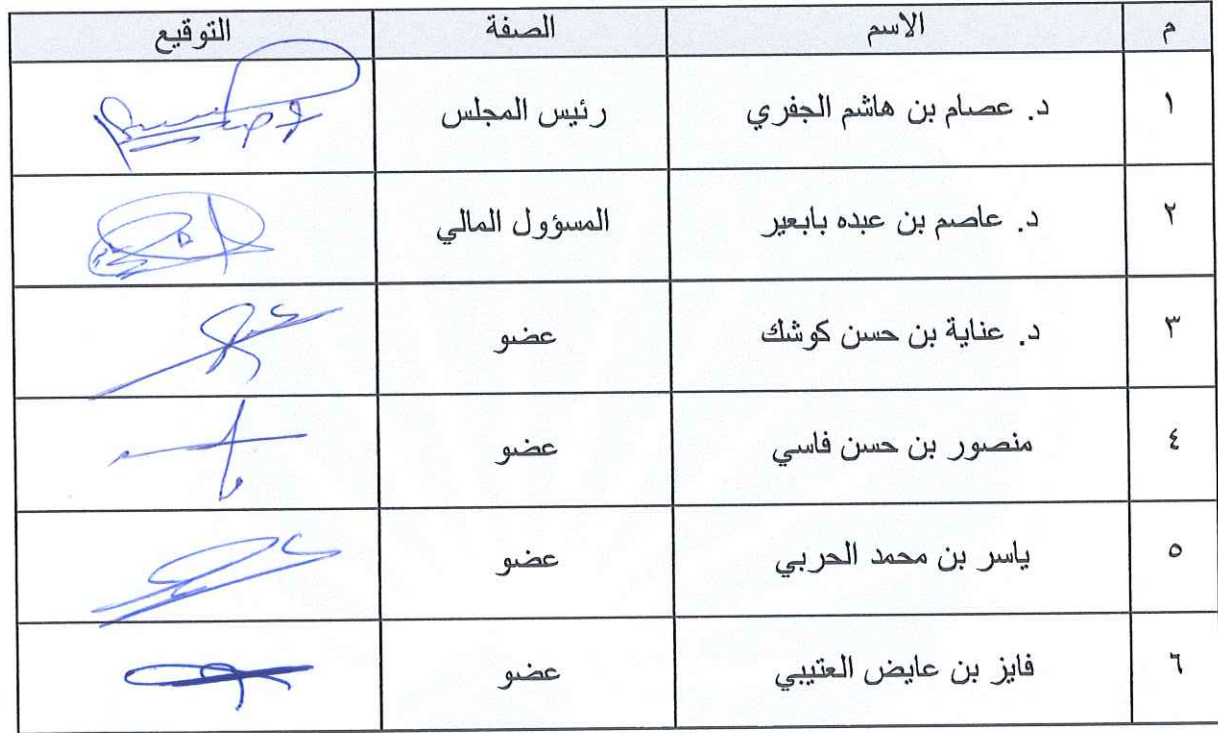 م الاسم الصفة التوقيع
١ د. عصام بن هاشم الجفري رئيس المجلس
٢ د. عاصم بن عبده بابعير المسؤول المالي
٣ د. عناية بن حسن كوشك عضو
٤ منصور بن حسن فاسي عضو
٥ ياسر بن محمد الحربي عضو
٦ فايز بن عايض العتيبي عضو